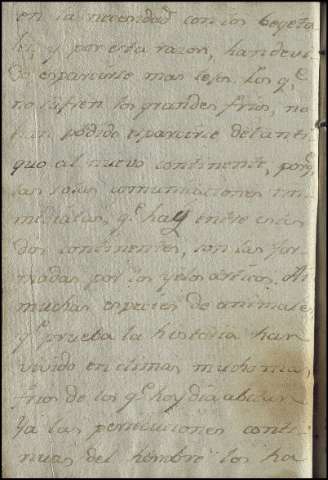 en la necesidad con los vegeta
les, y por esta razon, han devi
do esparcirse mas lejos. Los q.e
no sufren los grandes frios, no
han podido esparcirse del anti
guo al nuevo continente, porq.e
las solas comunicaciones in
mediatas, q.e hay entre estos
dos continentes, son las for
madas por los yelos articos. Ai
muchas especies de animales,
q.e prueba la historia han
vivido en climas mucho mas
frios de los q.e hoy dia abitan
Ya las persecuciones conti
nuas del hombre los ha